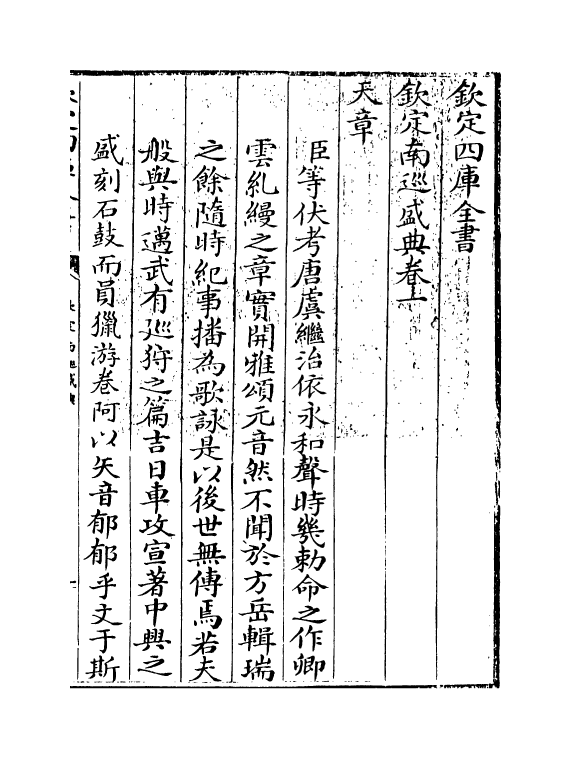 欽定四庫全書
欽定南巡盛典卷上
天章
臣等伏考唐虞繼治依永和聲時幾勅命之作卿
雲糺縵之章實開雅頌元音然不聞於方岳輯瑞
之餘隨時紀事播為歌詠是以後世無傳焉若夫
般與時邁武有廵狩之篇吉日車攻宣著中興之
盛刻石鼓而員獵游卷阿以矢音郁郁乎文于斯